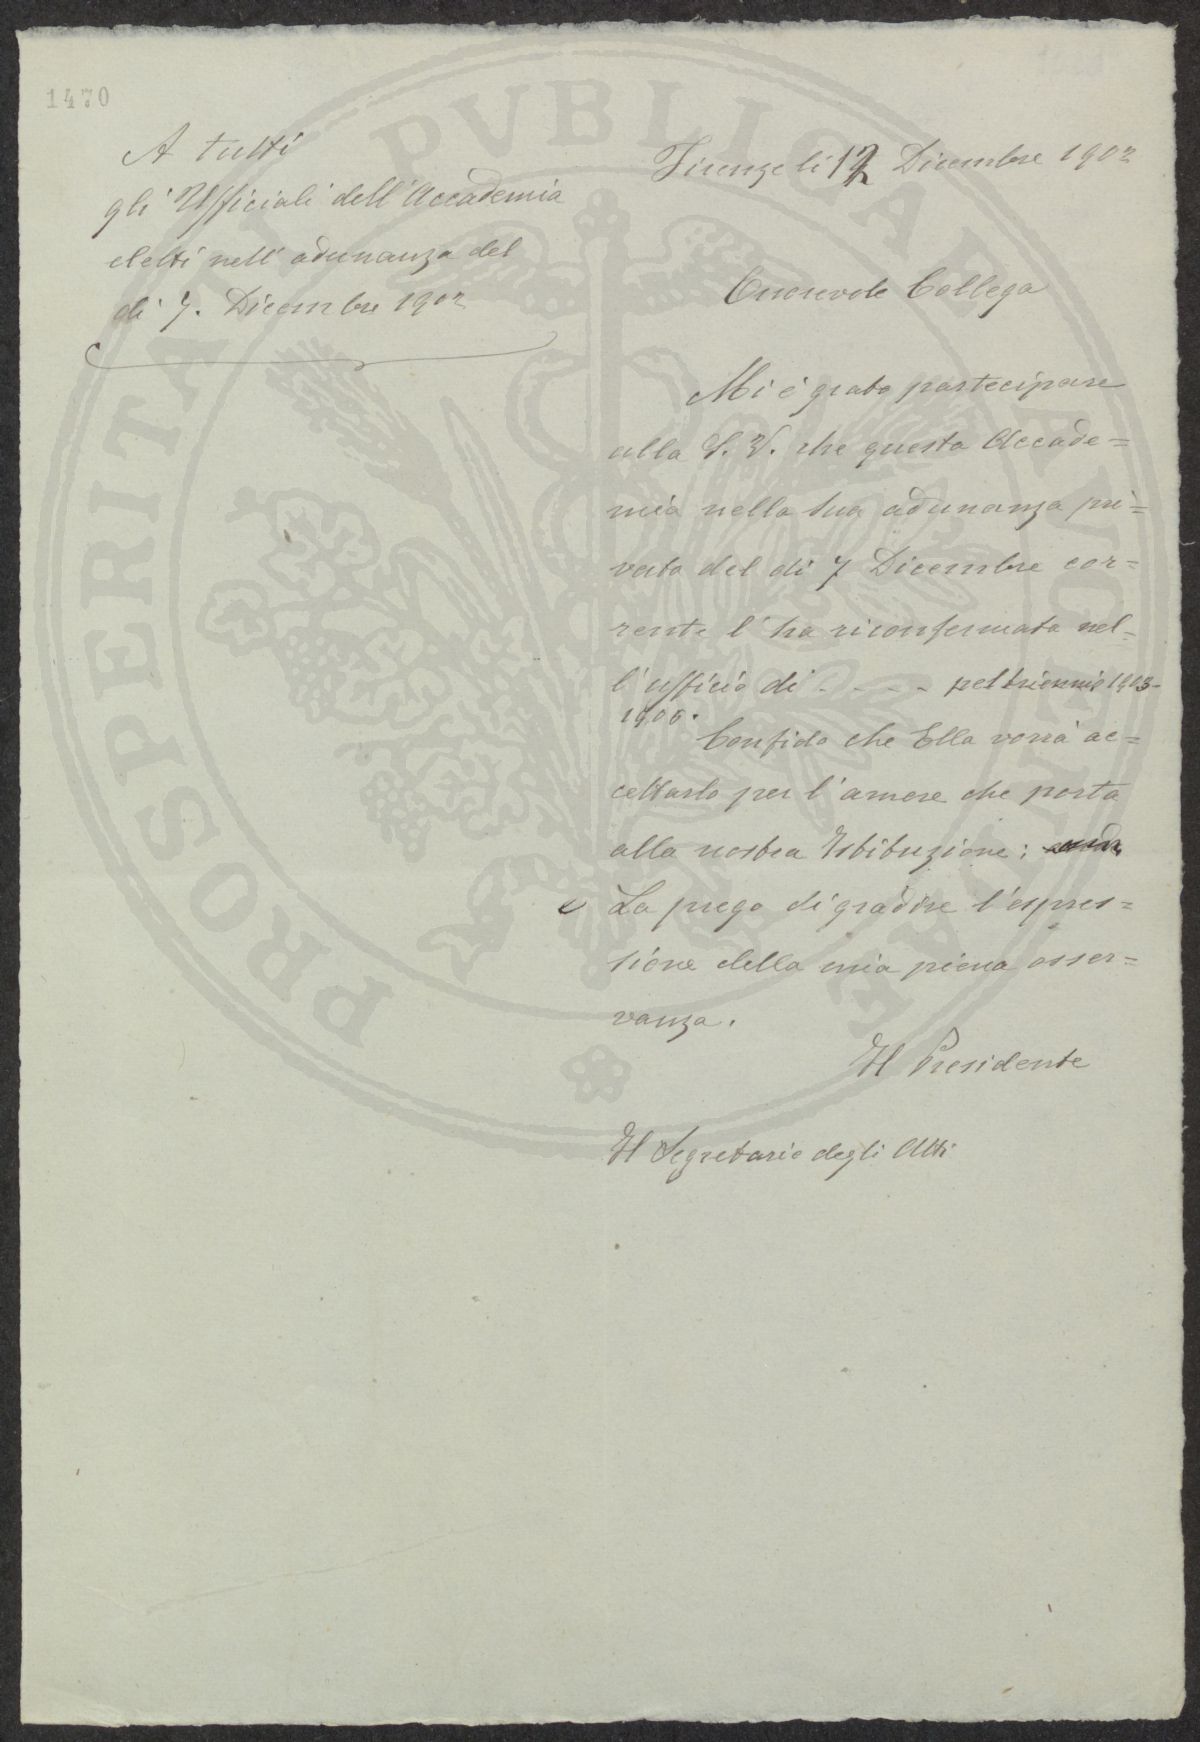 1470
A tutti
gli Ufficiali dell'Accademia
eletti nell'adunanza del
di 7. Dicembre 1902
Firenze li 12 Dicembre 1902
Onorevole Collega
Mi è grato partecipare
alla S. V. che questa Accade=
mia nella sua adunanza pri=
vata del di 7 Dicembre cor=
rente l'ha riconfermata nel=
l'ufficio di - - - - pel triennio 1903-
1906.
Confido che Ella vorrà ac=
cettarlo per l'amore che porta
alla nostra Istituzione;
e La prego di gradire l'espres=
sione della mia piena osser=
vanza.
Il Presidente
Il Segretario degli Atti
PROSPERITATI PVBLICAE AVGENDAE